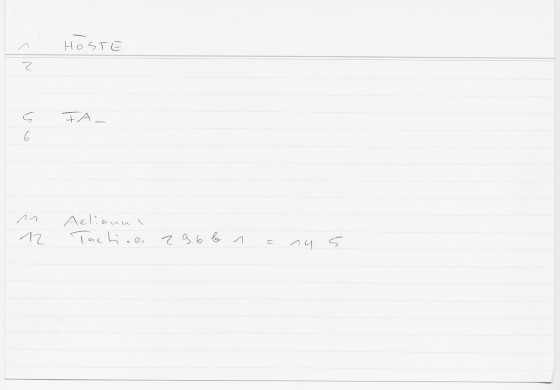 1 HŌSTE
2
5 FA_
6
11 Aelianus
12 Tactica 296 b 1 = 14 5